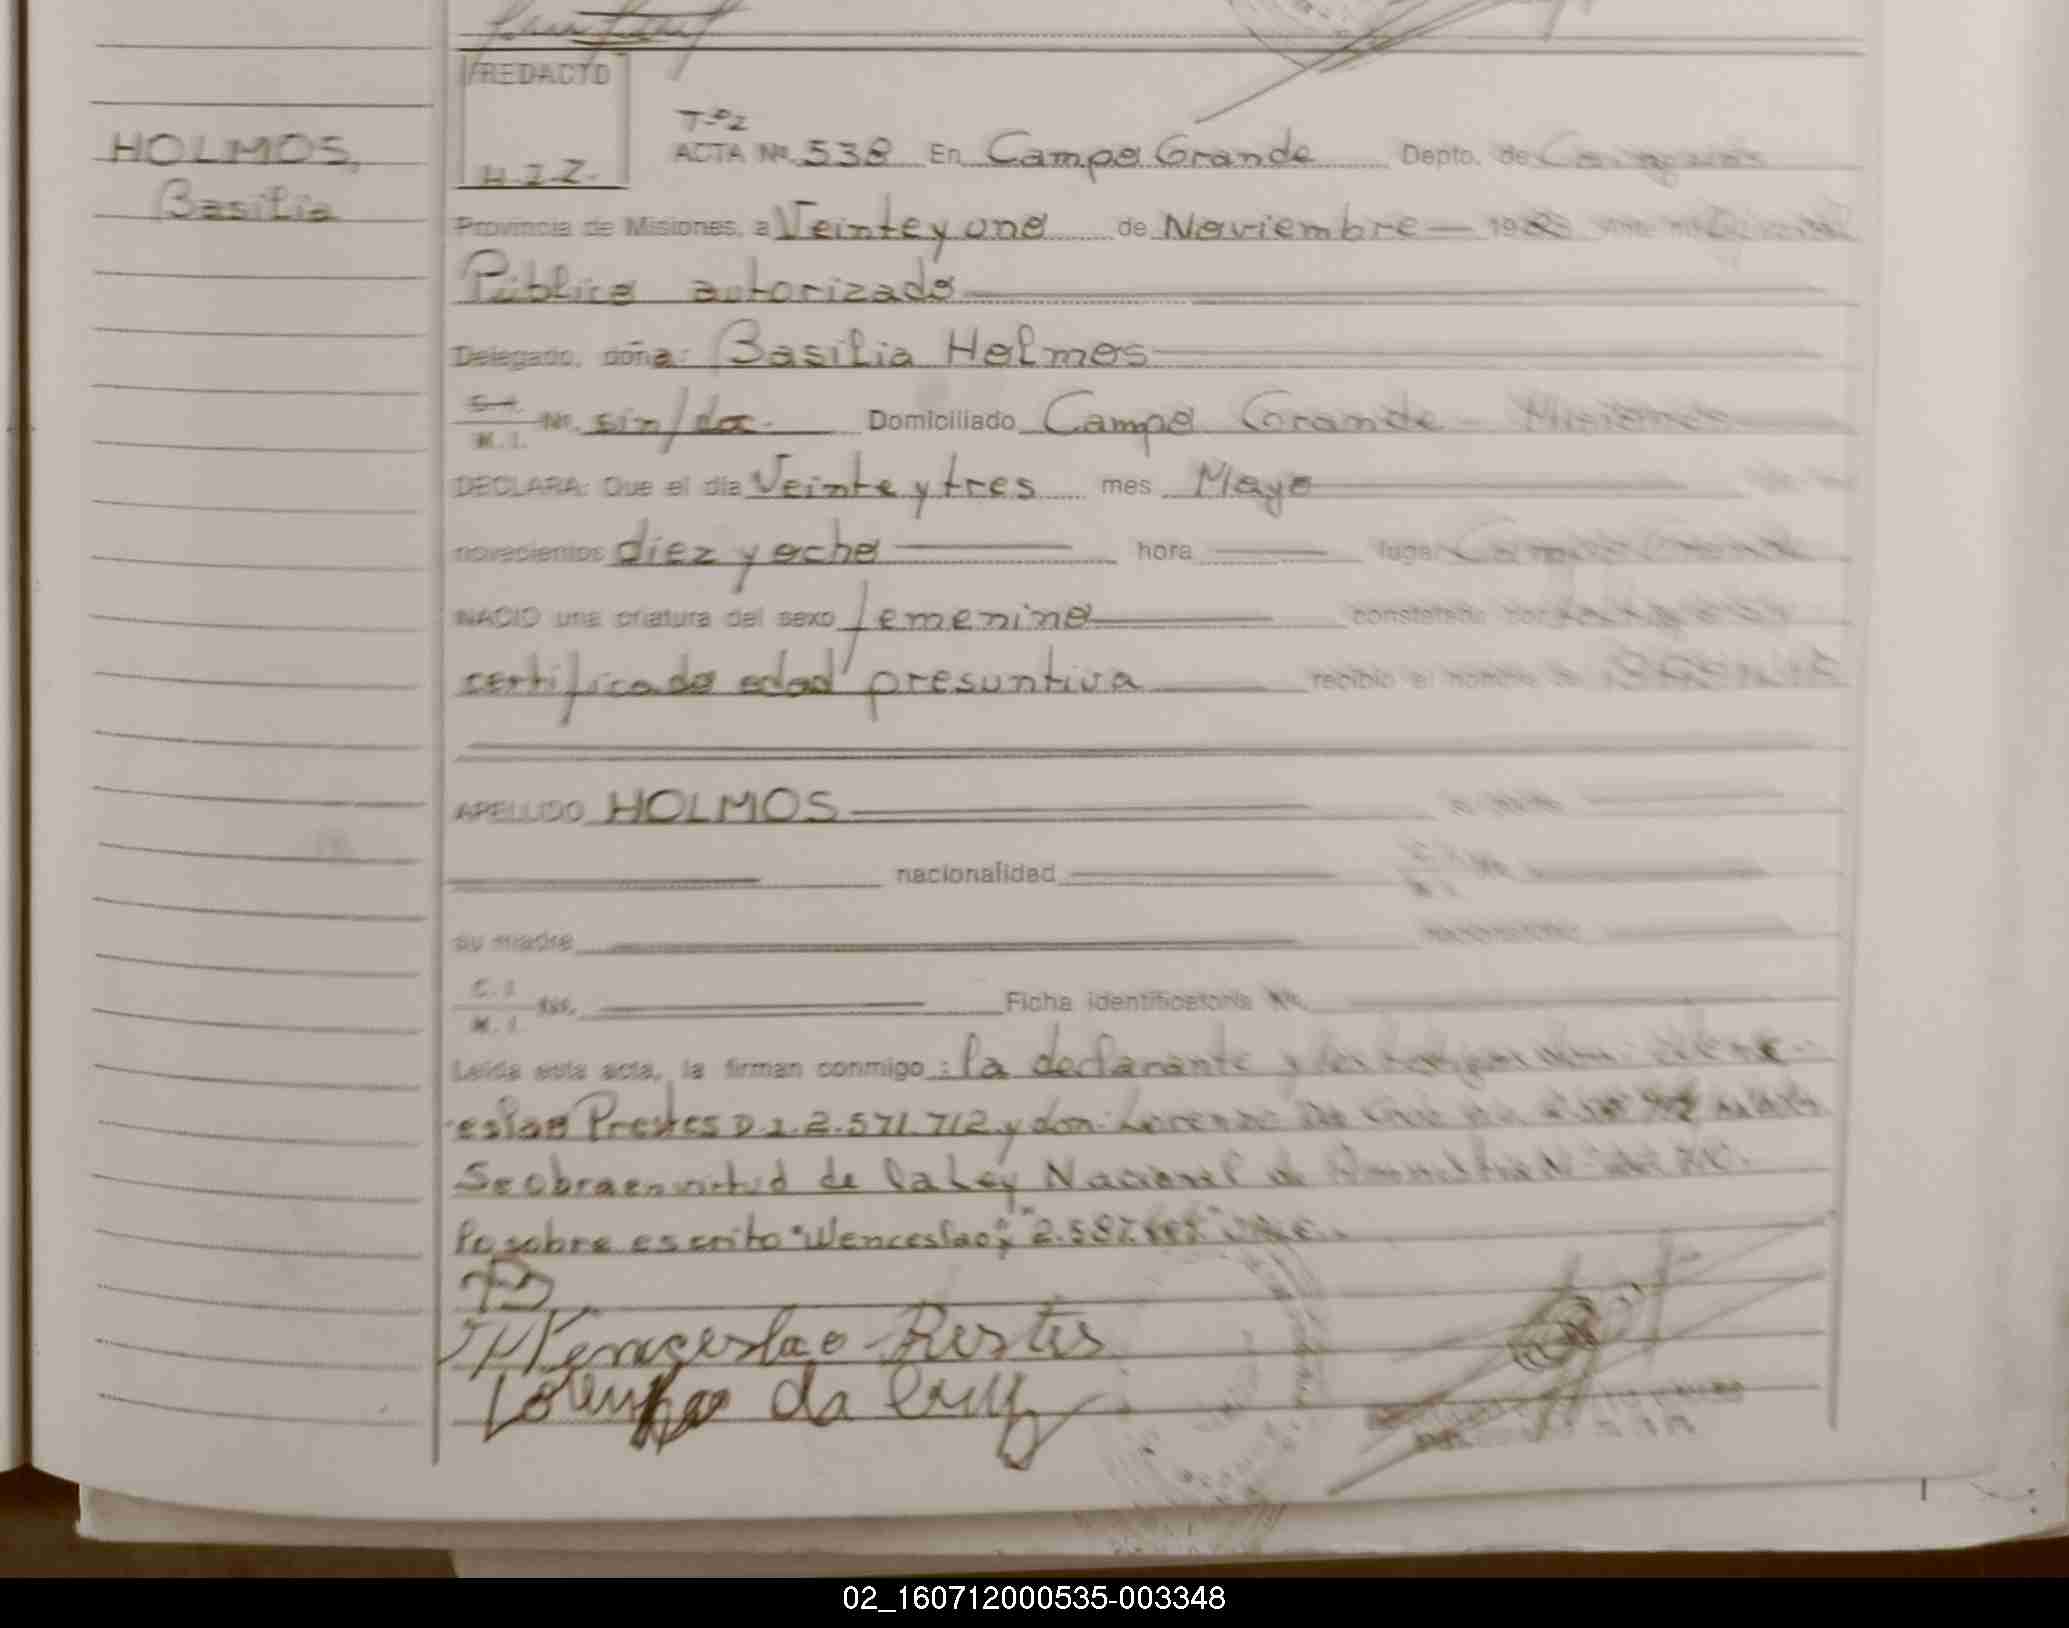 REDACTO
H.J.Z.
HOLMOS,
Basilia
Tº2
ACTA Nº 538 En Campo Grande Depto. de Cainguás
Provincia de Misiones, a Veinte y uno de Noviembre 19
Público autorizado
Delegado, doña: Basilia Holmos
C.I.
M.I. Nº. sin/doc. Domiciliado Campo Grande - Misiones
DECLARA: Que el día Veinte y tres mes Mayo
novecientos diez y ocho hora lugar Campo Grande
NACIO una criatura del sexo femenino constatado por
certificado edad presuntiva recibió el nombre de BASILIA
APELLIDO HOLMOS su padre
nacionalidad C.I. Nº.
M.I.
su madre nacionalidad
C.I.
M.I. Nº. Ficha identificatoria Nº.
Leída esta acta, la firman conmigo: la declarante y los testigos don:
eslao Prestes D.I. 2.571.712 y don: Lorenzo
Se obra en virtud de la Ley Nacional de Amnistia
Lo sobre escrito "Wenceslao",
Wenceslao Prestes
Lorenzo da Cruz
02_160712000535-003348